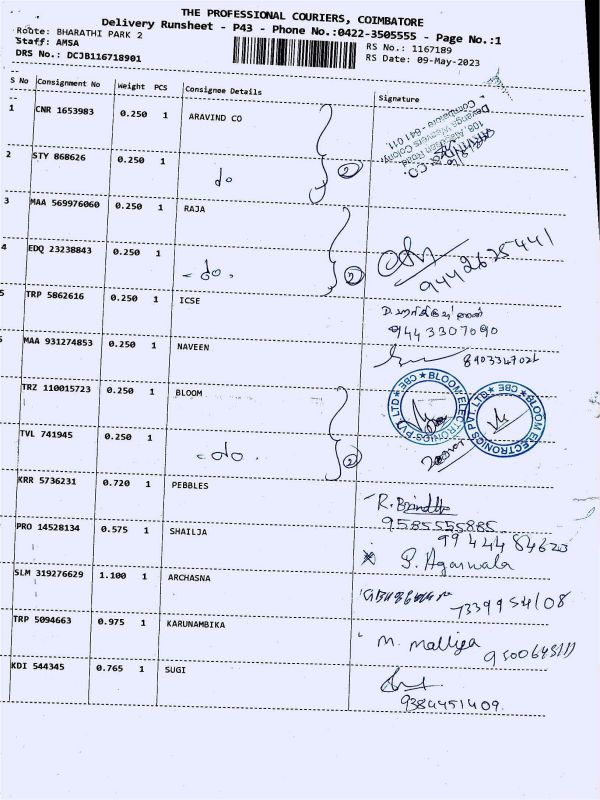 THE PROFESSIONAL COURIERS, COIMBATORE
Delivery Runsheet - P43 - Phone No.:0422-3505555 - Page No.:1
Route: BHARATHI PARK 2
RS No.: 1167189
Staff: AMSA
RS Date: 09-May-2023
DRS No.: DCJB116718901
S No Consignment No Weight PCS Consignee Details Signature
1 CNR 1653983 0.250 1 ARAVIND CO
108,
Devanga Weavers Colony,
Coimbatore - 641 011.
2 STY 868626 0.250 1 do 2
3 MAA 569976060 0.250 1 RAJA
4 EDQ 23238843 0.250 1 - do. 2
5 TRP 5862616 0.250 1 ICSE
9443307090
MAA 931274853 0.250 1 NAVEEN
TRZ 110015723 0.250 1 BLOOM
BLOOM ELECTRONICS PVT. LTD ★ CBE ★
BLOOM ELECTRONICS PVT. LTD ★ CBE ★
TVL 741945 0.250 1 - do. 2
KRR 5736231 0.720 1 PEBBLES
9585555885
PRO 14528134 0.575 1 SHAILJA P. Agarwala
SLM 319276629 1.100 1 ARCHASNA
TRP 5094663 0.975 1 KARUNAMBIKA M. Malliga
KDI 544345 0.765 1 SUGI
9384451409.